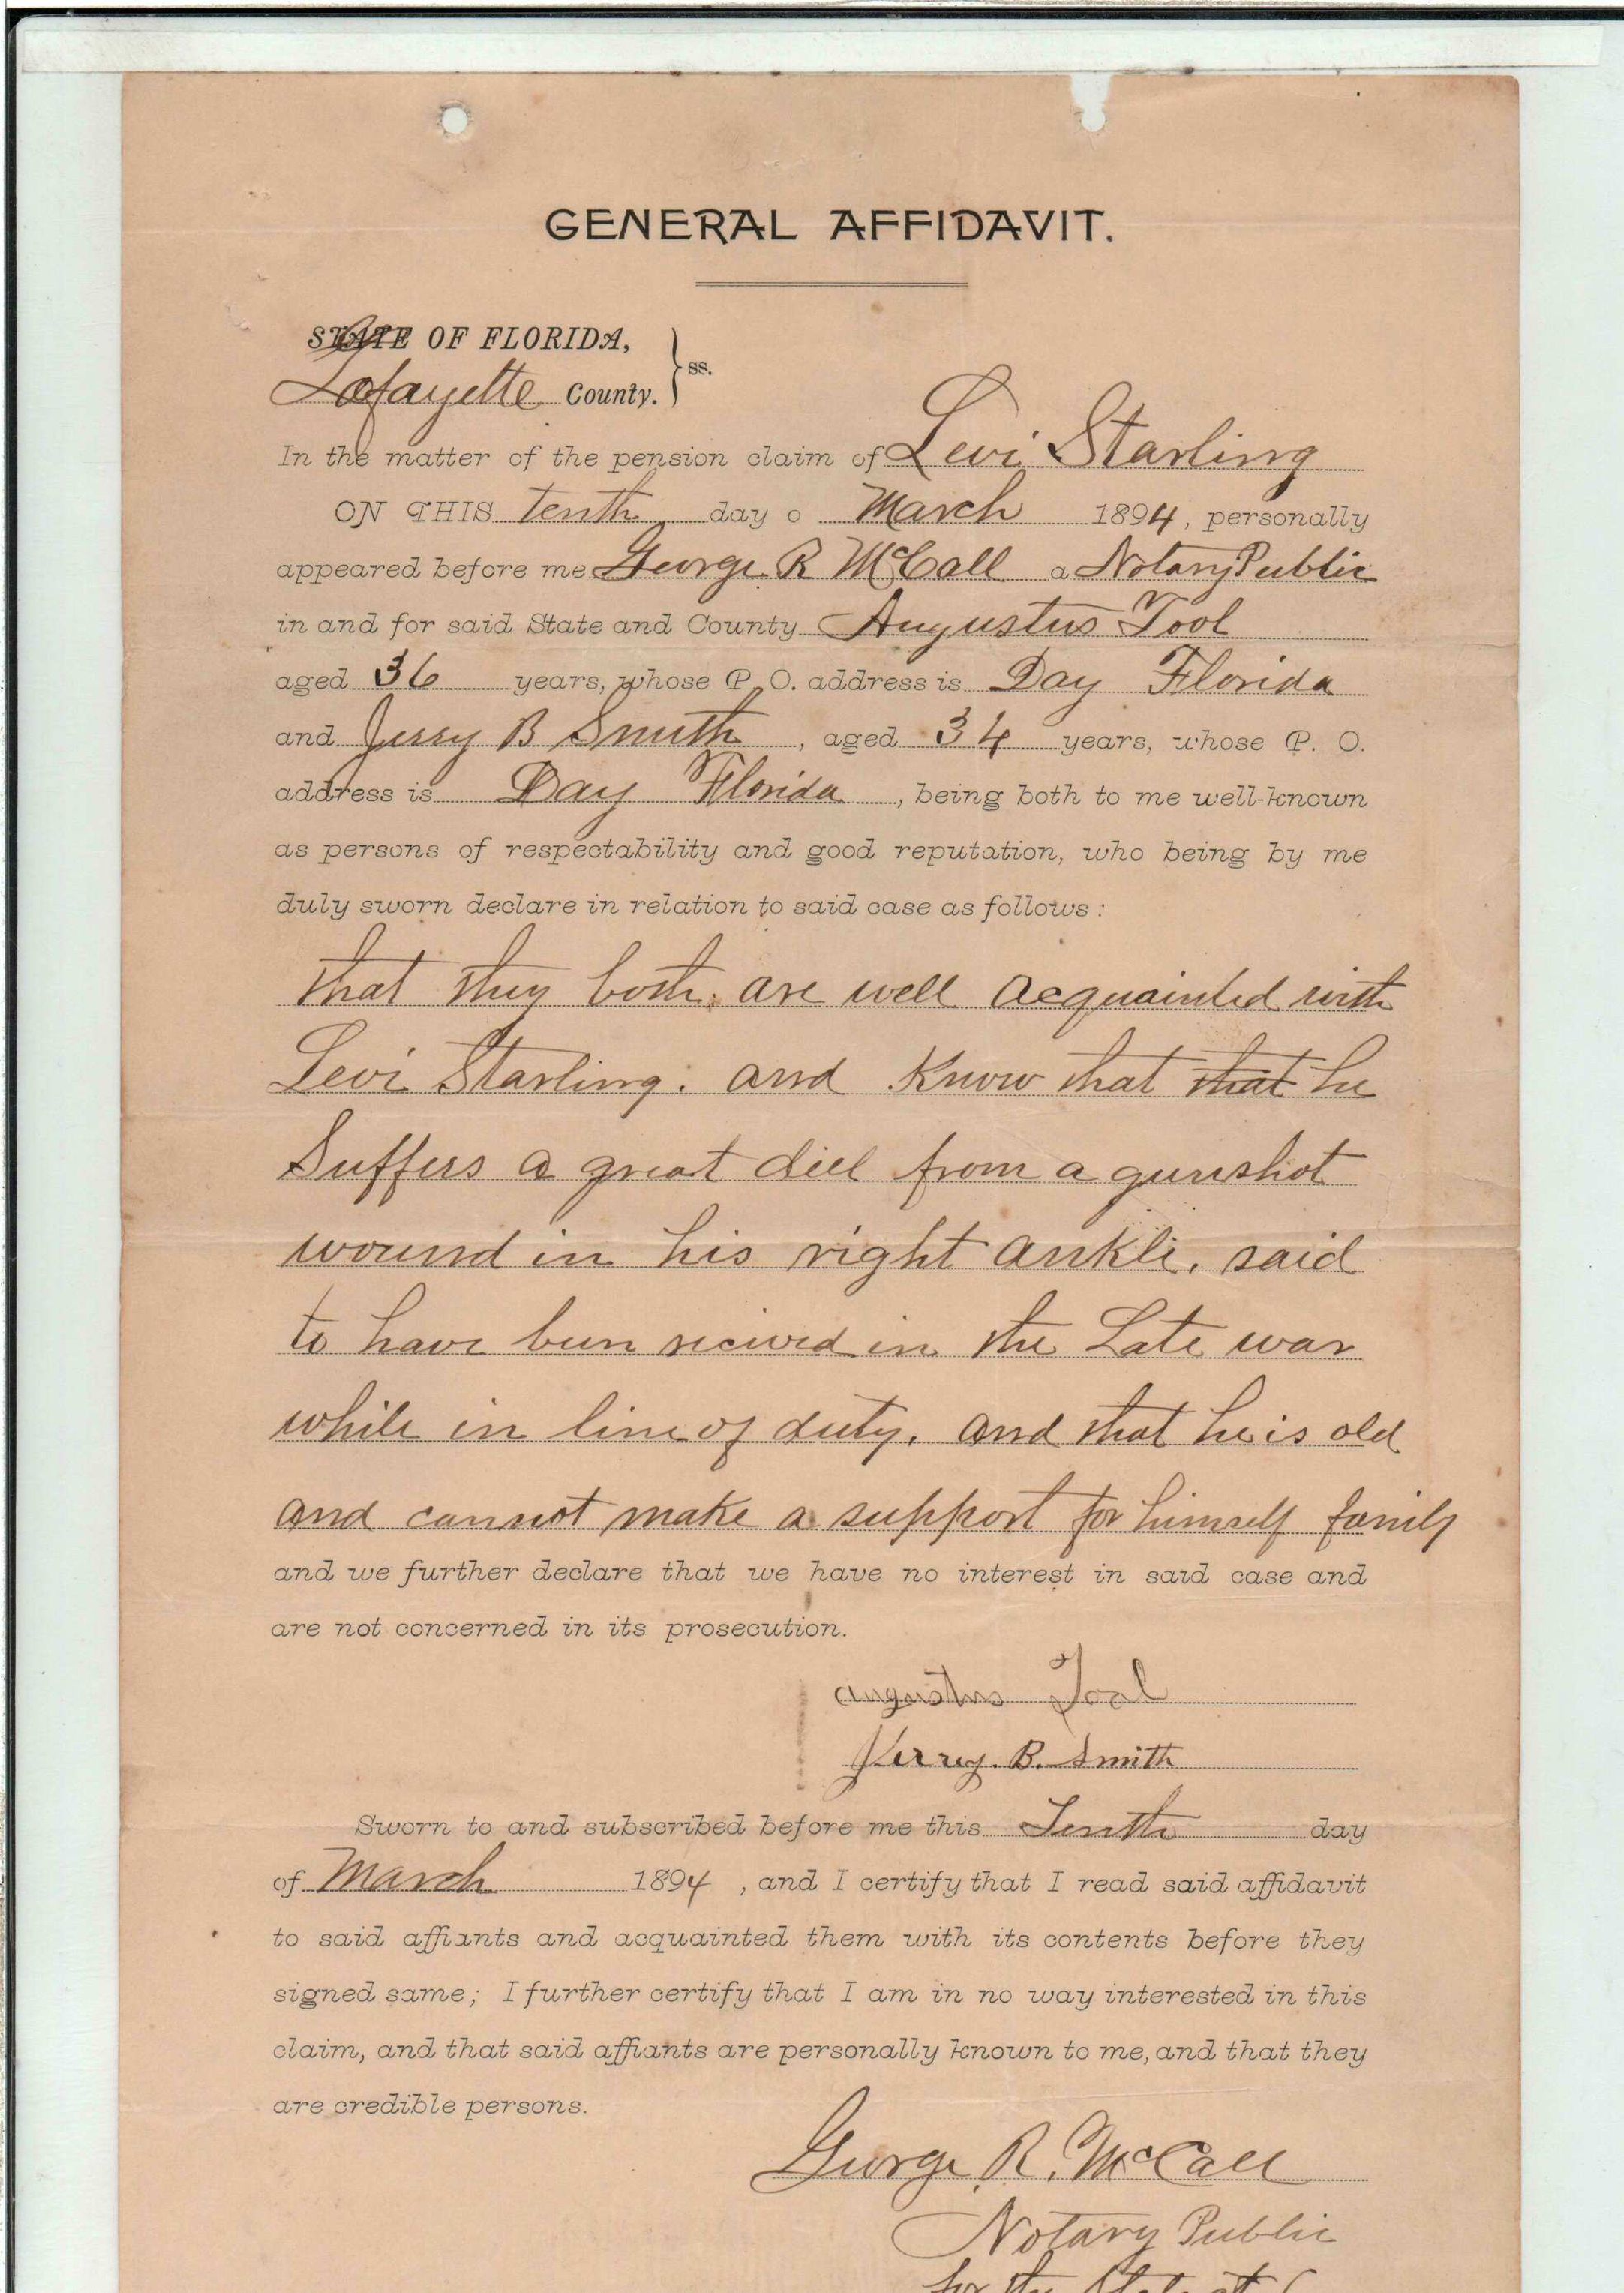 GENERAL AFFIDAVIT.
STATE OF FLORIDA,
Lafayette County. } ss.
In the matter of the pension claim of Levi Starling
ON THIS tenth day o March 1894, personally
appeared before me George R McCall a Notary Public
in and for said State and County Augustus Tool
aged 36 years, whose P. O. address is Day Florida
and Jerry B Smith, aged 34 years, whose P. O.
address is Day Florida, being both to me well-known
as persons of respectability and good reputation, who being by me
duly sworn declare in relation to said case as follows:
that they both are well acquainted with
Levi Starling. and Know that that he
Suffers a great deel from a gunshot
wound in his right ankle, said
to have been recived in the Late war
while in line of duty, and that he is old
and cannot make a support for himself family
and we further declare that we have no interest in said case and
are not concerned in its prosecution.
Augustus Tool
Jerry. B. Smith
Sworn to and subscribed before me this Tenth day
of March 1894, and I certify that I read said affidavit
to said affiants and acquainted them with its contents before they
signed same; I further certify that I am in no way interested in this
claim, and that said affiants are personally known to me, and that they
are credible persons.
George R. McCall
Notary Public
for the State at